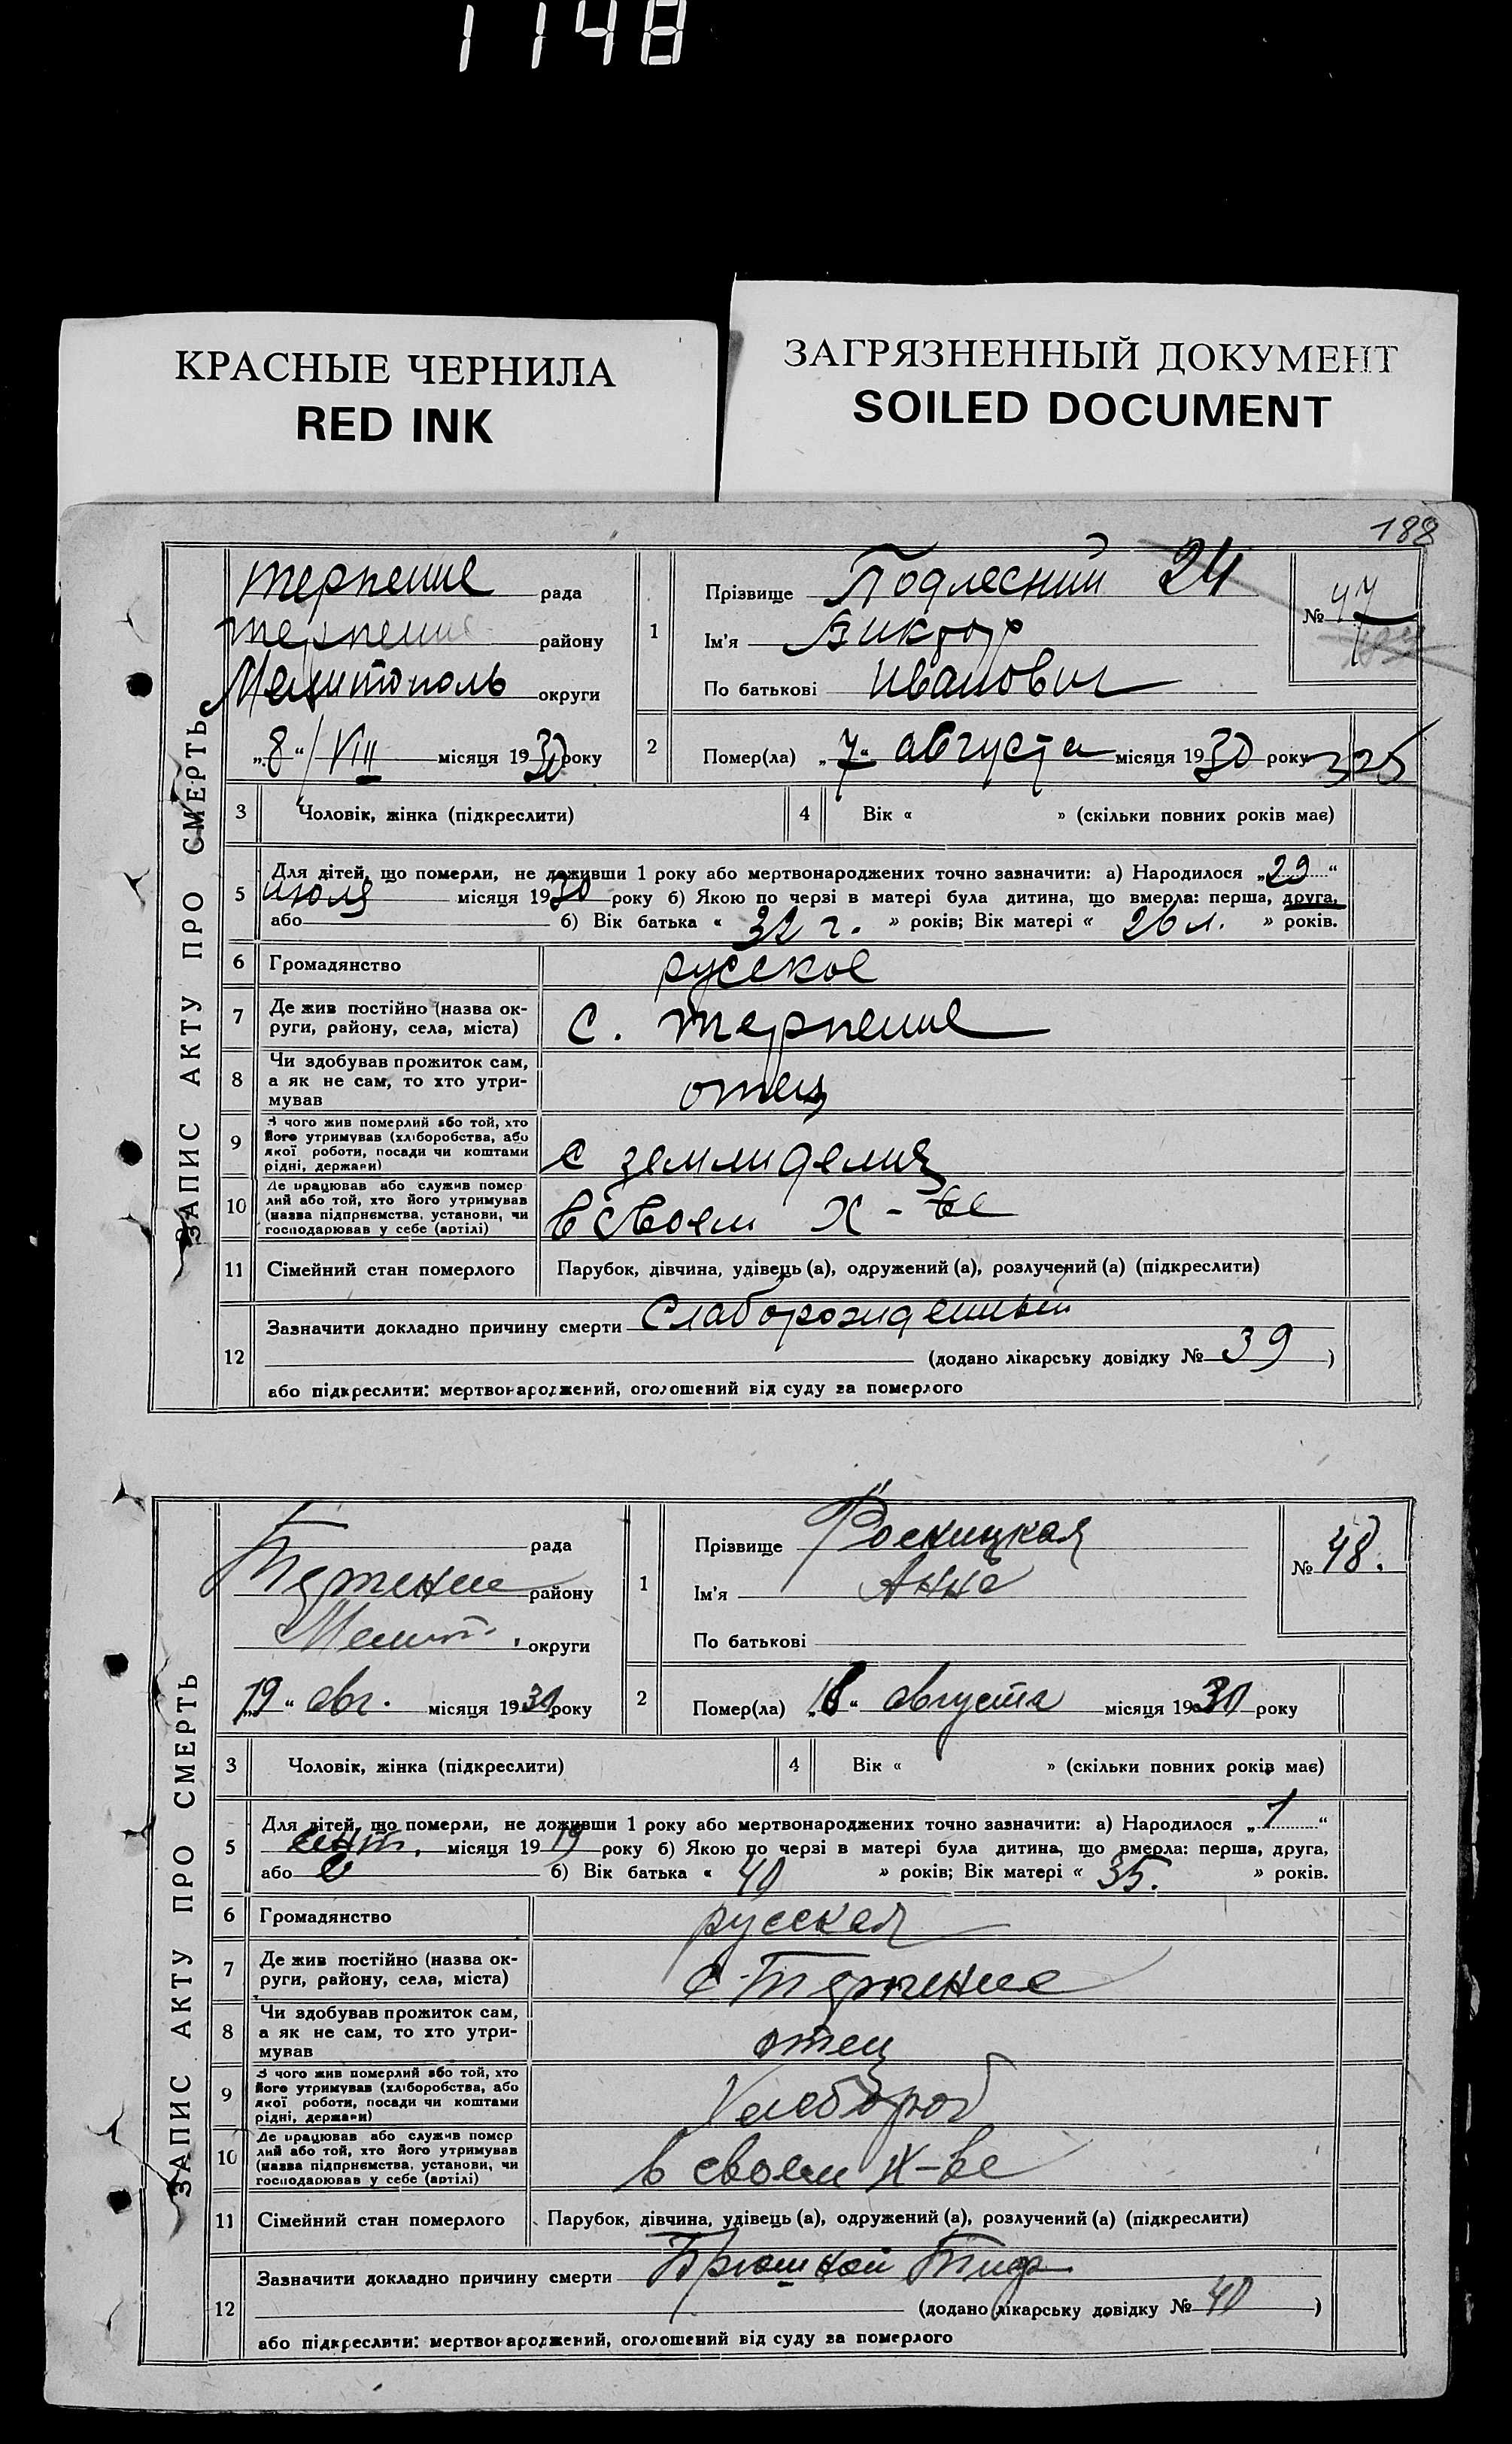 1148
КРАСНЫЕ ЧЕРНИЛА
RED INK
ЗАГРЯЗНЕННЫЙ ДОКУМЕНТ
SOILED DOCUMENT
188
ЗАПИС АКТУ ПРО СМЕРТЬ
Терпение рада
Терпение району
Мелитополь округи
„8“/VIII місяця 1930 року
1 Прізвище Подлесний 24
Ім'я Виктор
По батькові Иванович
№ 47
2 Помер(ла) „7“ августа місяця 1930 року 325
3 Чоловік, жінка (підкреслити)
4 Вік « » (скільки повних років має)
5 Для дітей, що померли, не доживши 1 року або мертвонароджених точно зазначити: а) Народилося „29“
июля місяця 1930 року б) Якою по черзі в матері була дитина, що вмерла: перша, друга,
або б) Вік батька « 32 г. » років; Вік матері « 26 л. » років.
6 Громадянство русское
7 Де жив постійно (назва округи, району, села, міста) с. Терпение
8 Чи здобував прожиток сам, а як не сам, то хто утримував отец
9 З чого жив померлий або той, хто його утримував (хліборобства, або якої роботи, посади чи коштами рідні, держави) с землиделия
10 Де працював або служив померлий або той, хто його утримував (назва підприємства, установи, чи господарював у себе (артілі) в своем х-ве
11 Сімейний стан померлого Парубок, дівчина, удівець (а), одружений (а), розлучений (а) (підкреслити)
12 Зазначити докладно причину смерти Слаборожденный
(додано лікарську довідку № 39)
або підкреслити: мертвонароджений, оголошений від суду за померлого
ЗАПИС АКТУ ПРО СМЕРТЬ
рада
Терпение району
Мелит. округи
„19“ авг. місяця 1930 року
1 Прізвище
Ім'я Анна
По батькові
№ 48.
2 Помер(ла) „18“ августа місяця 1930 року
3 Чоловік, жінка (підкреслити)
4 Вік « » (скільки повних років має)
5 Для дітей, що померли, не доживши 1 року або мертвонароджених точно зазначити: а) Народилося „1“
сент. місяця 1919 року б) Якою по черзі в матері була дитина, що вмерла: перша, друга,
або б) Вік батька « 40 » років; Вік матері « 35. » років.
6 Громадянство русская
7 Де жив постійно (назва округи, району, села, міста) с. Терпение
8 Чи здобував прожиток сам, а як не сам, то хто утримував отец
9 З чого жив померлий або той, хто його утримував (хліборобства, або якої роботи, посади чи коштами рідні, держави) Хлебороб
10 Де працював або служив померлий або той, хто його утримував (назва підприємства, установи, чи господарював у себе (артілі) в своем х-ве
11 Сімейний стан померлого Парубок, дівчина, удівець (а), одружений (а), розлучений (а) (підкреслити)
12 Зазначити докладно причину смерти Брюшной Тиф
(додано лікарську довідку № 40)
або підкреслити: мертвонароджений, оголошений від суду за померлого